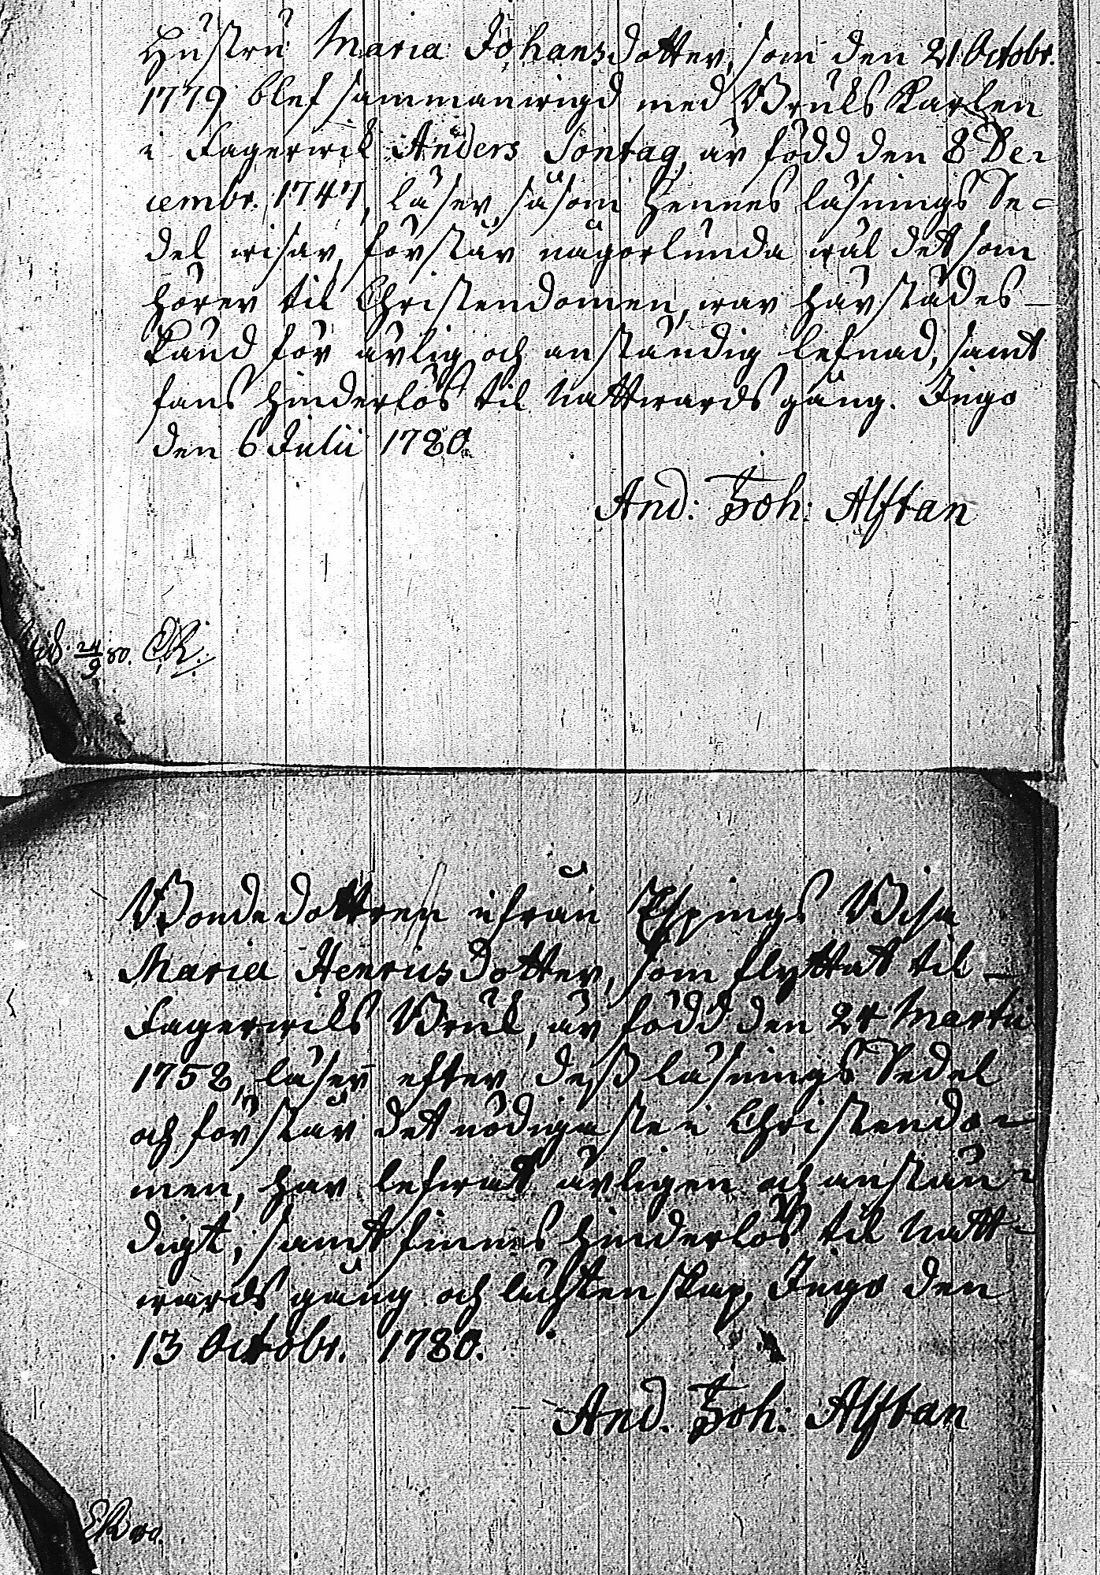 Hustru Maria Johansdotter, som den 21 Octobr.
1779 blef sammanwigd med Bruks Karlen
i Fagerwik Anders Sontag, är född den 8 De=
cembr. 1747, läser, såsom hennes läsnings Se=
del wisar, förstår någorlunda wäl det som
hörer til Christendomen, war härstädes
känd för ärlig och anständig lefnad, samt
fans hinderlös til Nattwards gång. Ingo
den 6 Julii 1780.
And: Joh: Alftan
24/9 80. CR.
Bonde dottren ifrån Espings Bisa
Maria Henricsdotter, som flyttat til
Fagerwiks Bruk, är född den 24 Martii
1752, läser efter dess läsnings Sedel
och förstår det nödigaste i Christendo=
men, har lefwat ärligen och anstän=
digt, samt finnes hinderlös til Natt=
wards gång och lächtenskap, Ingo den
13 Octobr. 1780.
And. Joh: Alftan